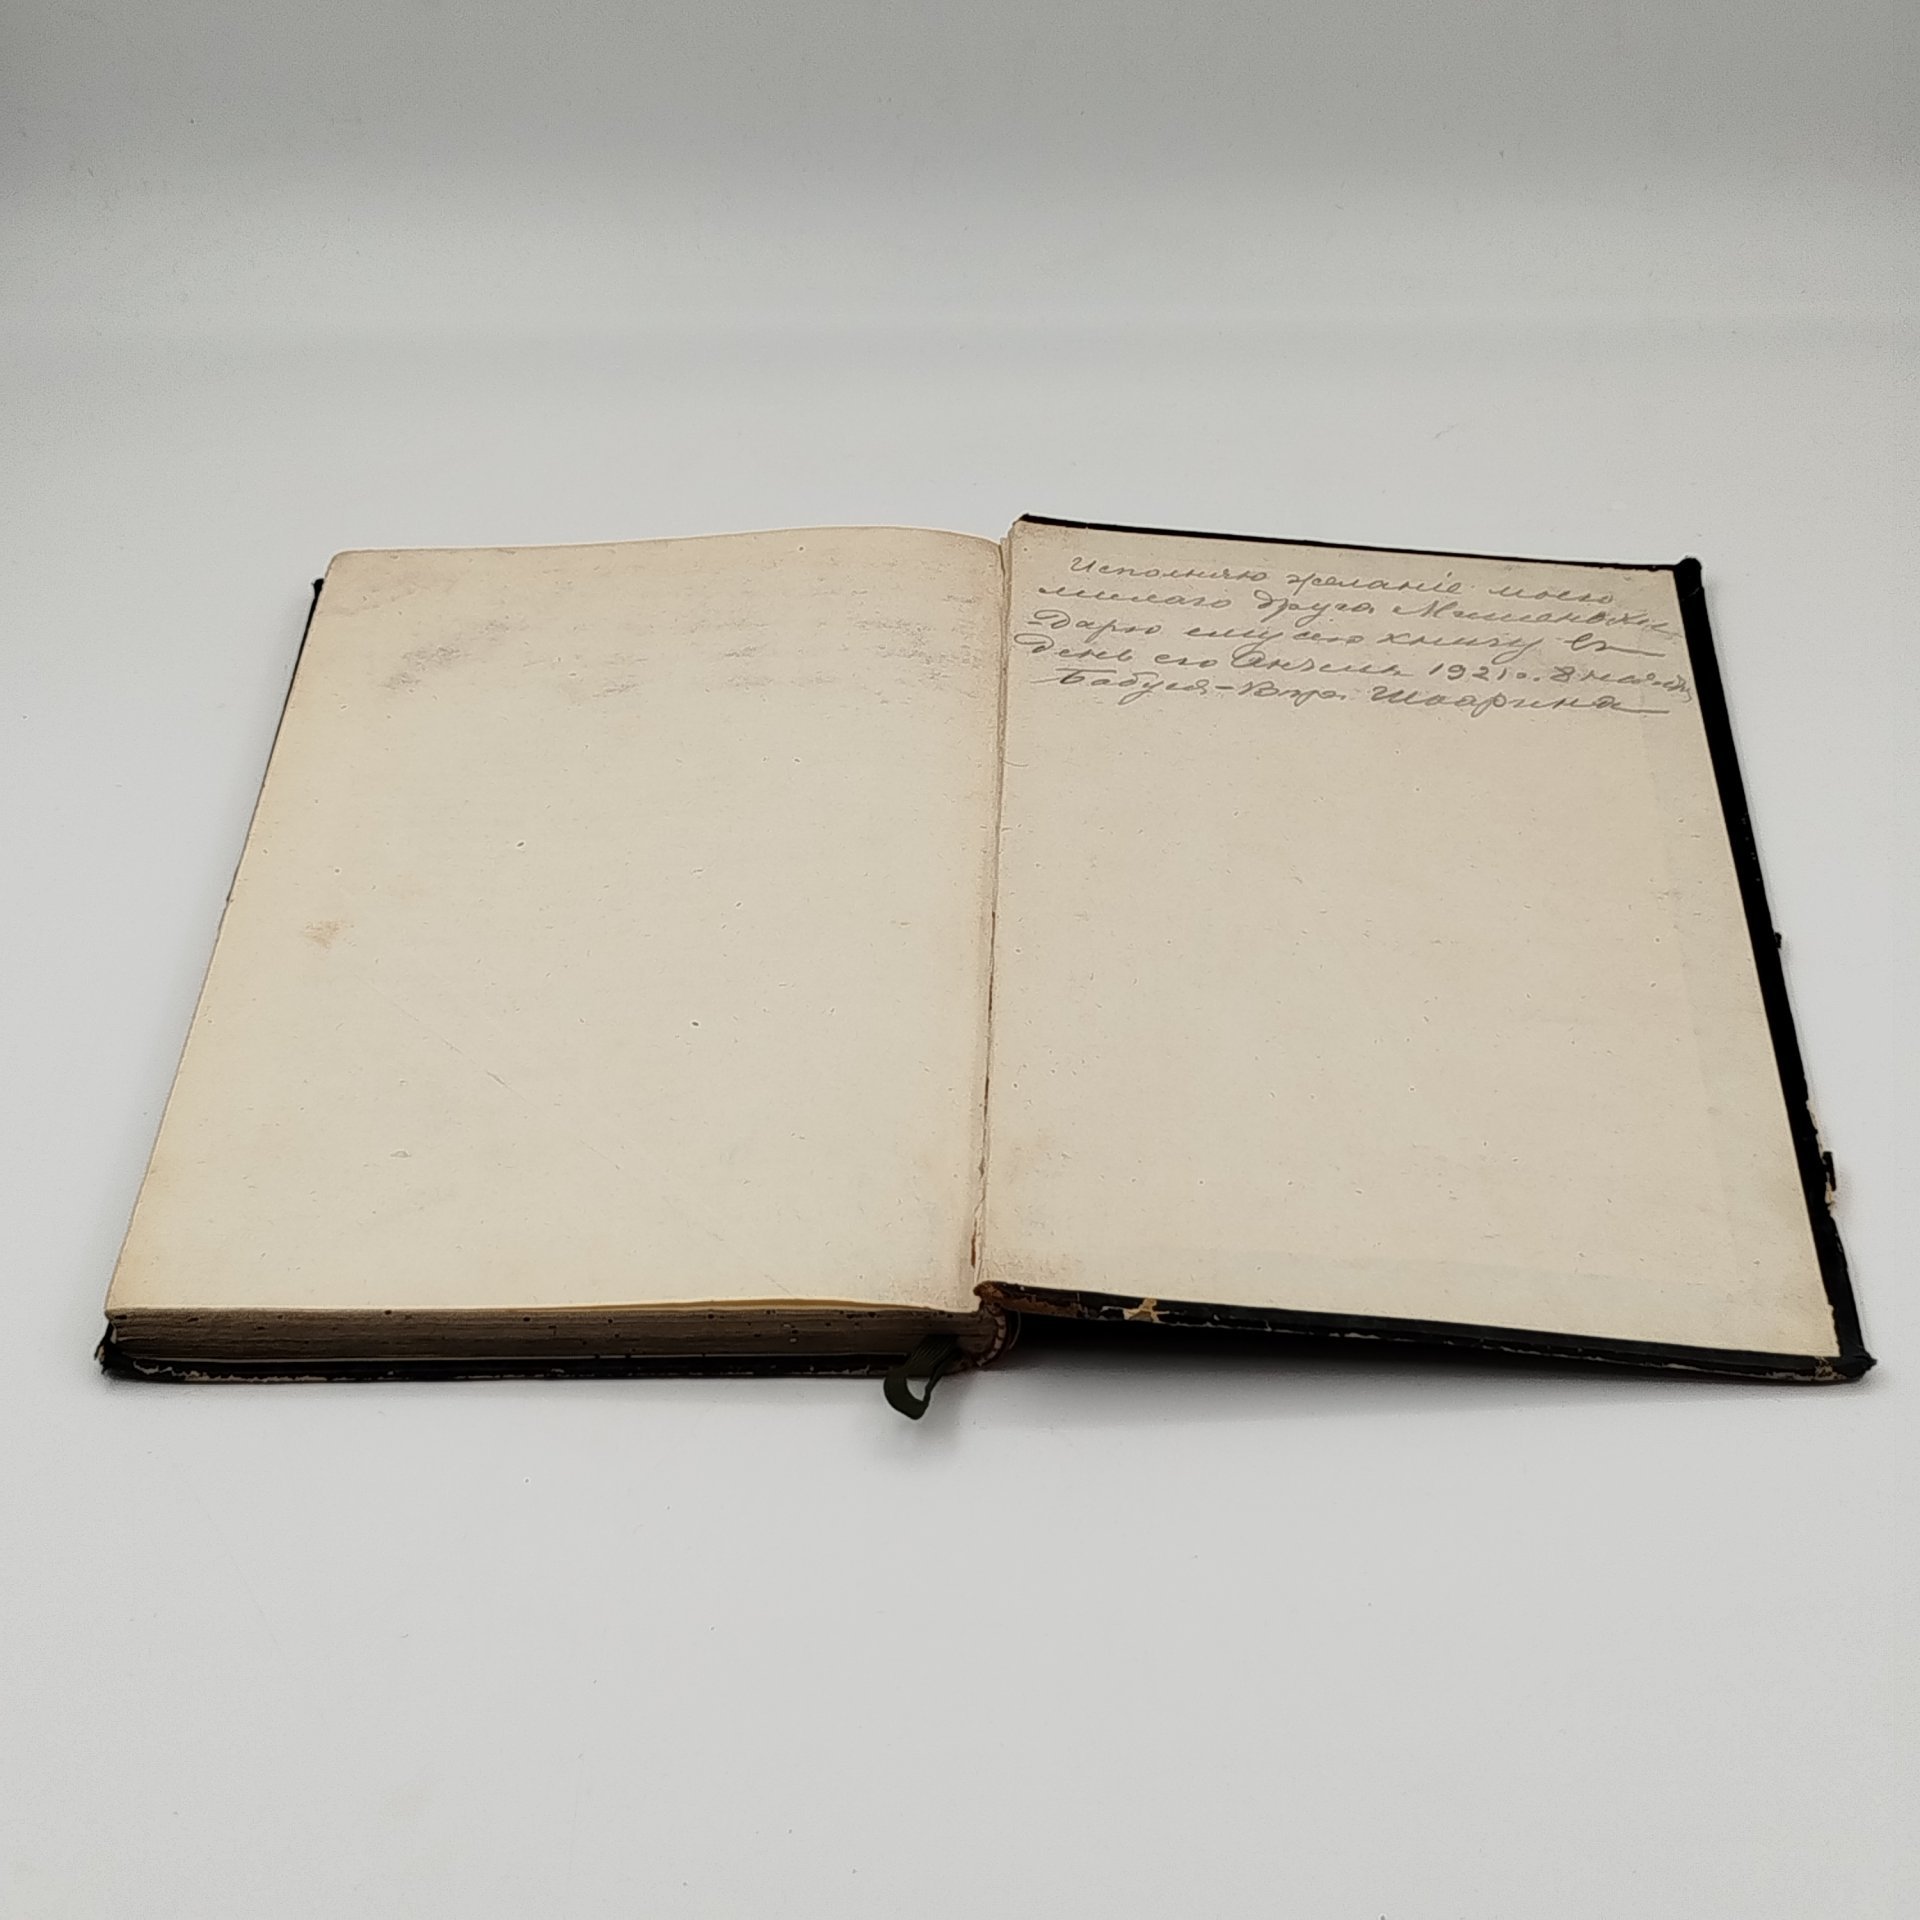 Исполняю желаніе моего
милаго друга Мишеньки
Дарю ему сію книгу въ
день его Ангела 1921 г. 8 ноября
Бабуся